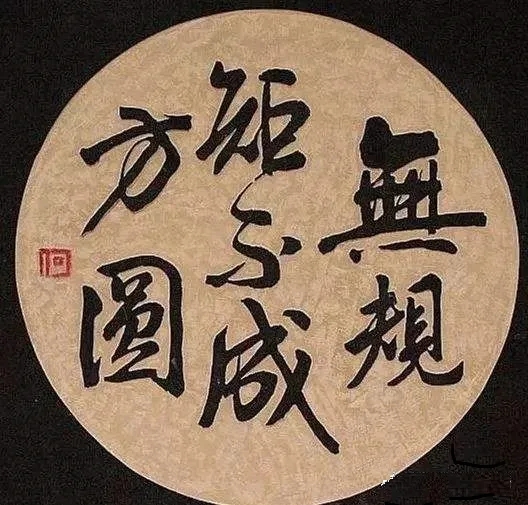 無規
矩不成
方圓
何